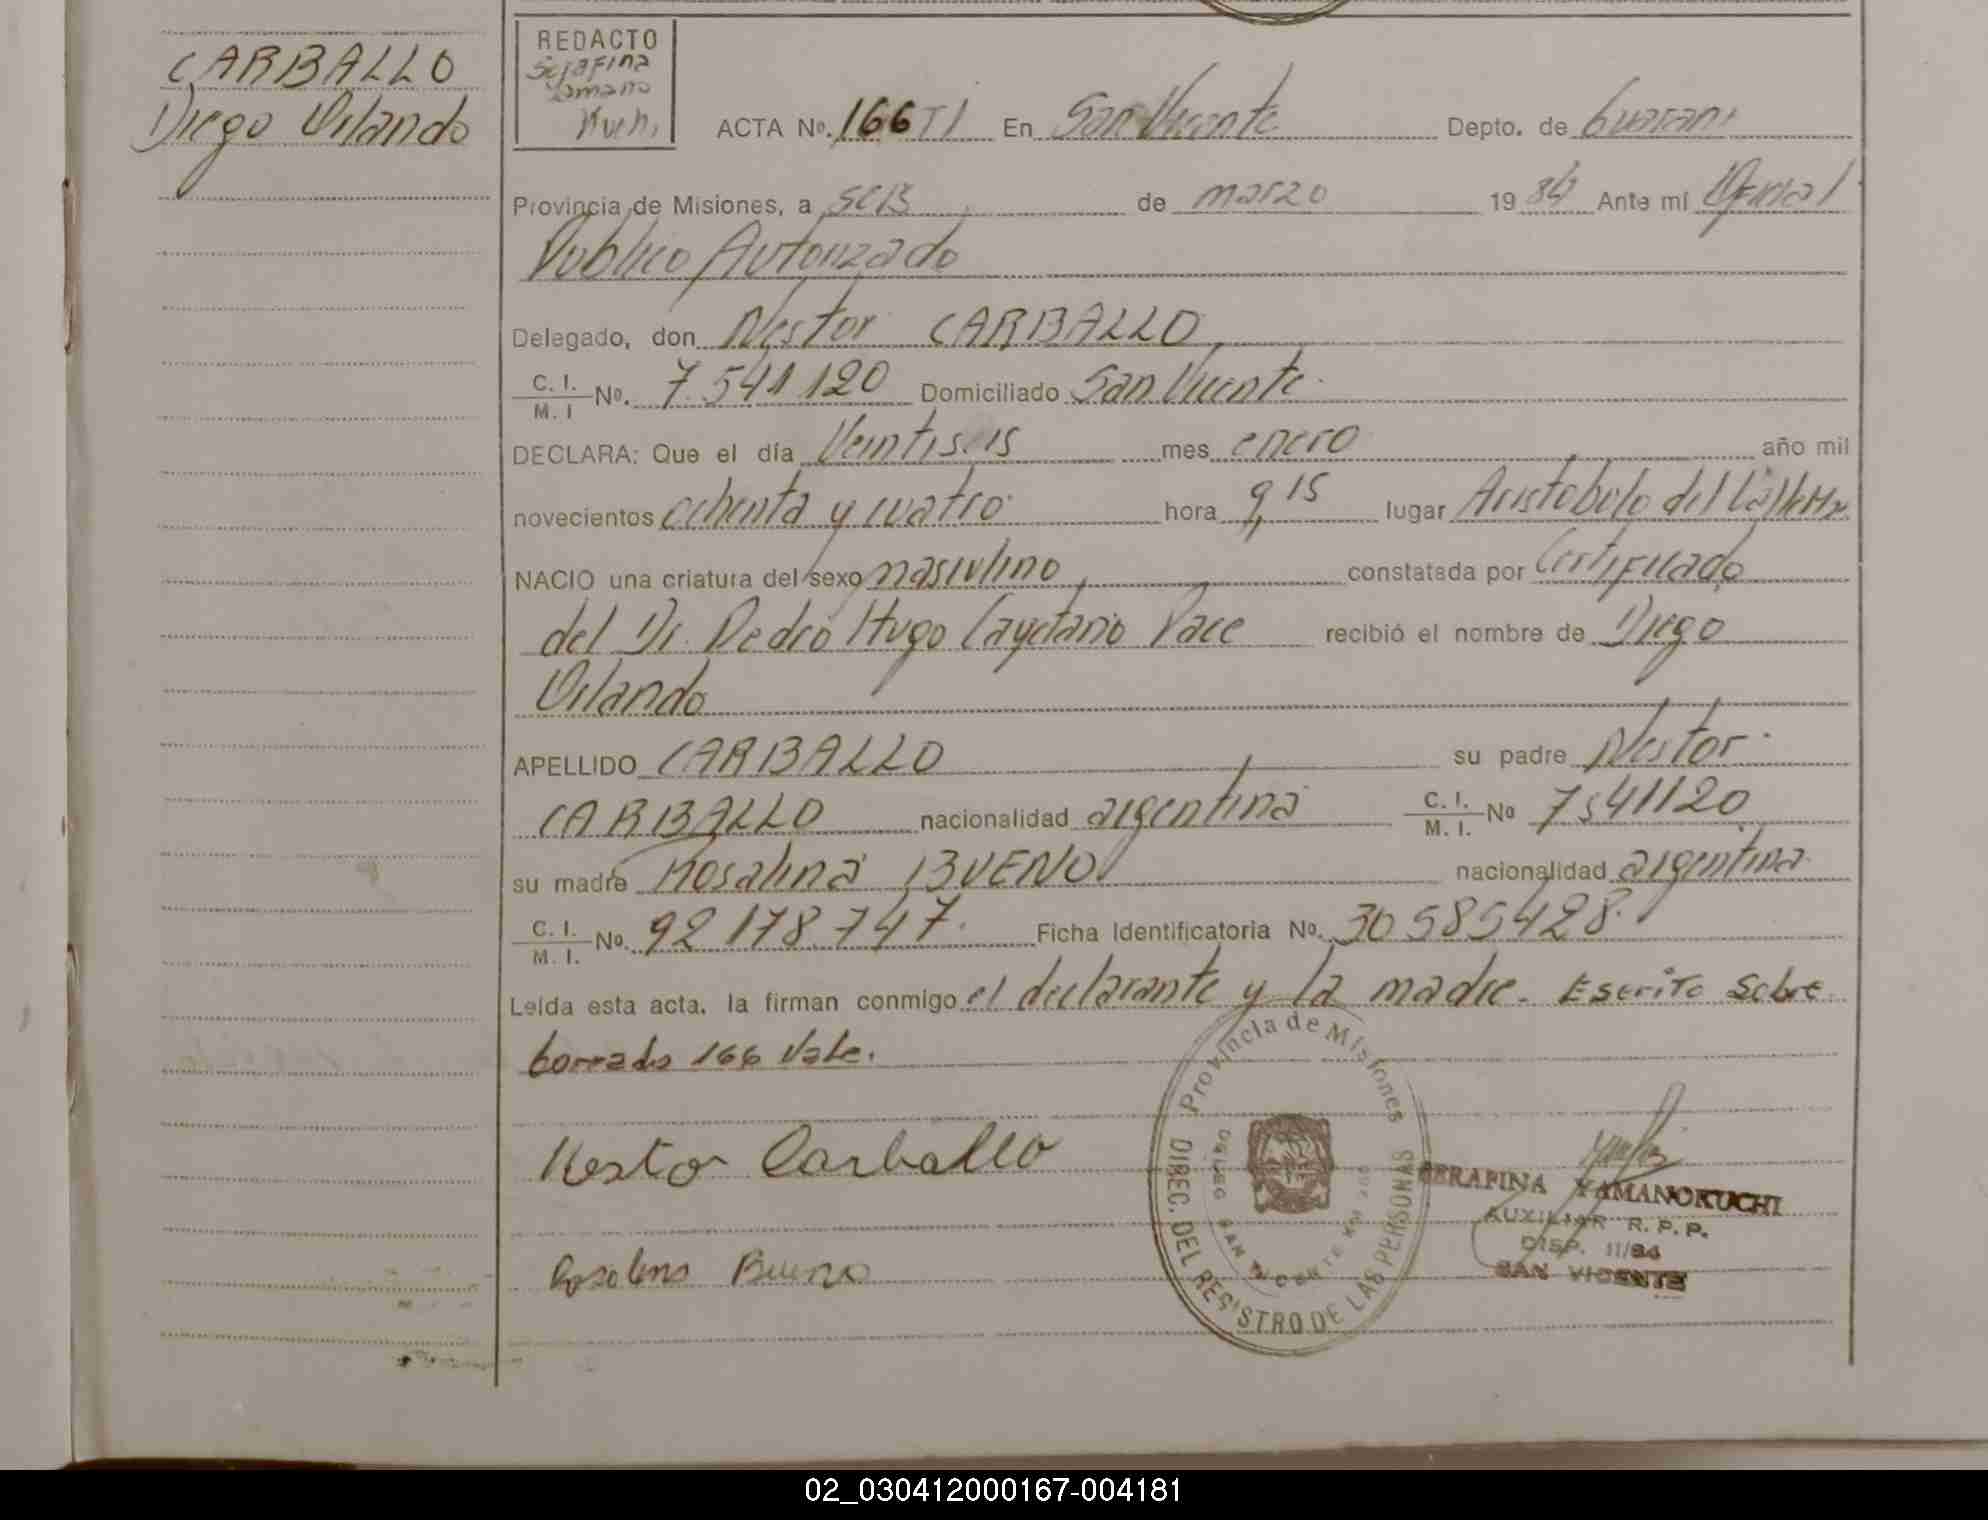 CARBALLO
Diego Orlando
REDACTO
Serafina
Yamano
Kuchi
ACTA No. 166 TI En San Vicente Depto. de Guarani
Provincia de Misiones, a seis de marzo 1984 Ante mi Oficial
Publico Autorizado
Delegado, don Nestor CARBALLO
C. I. / M. I No. 7.541.120 Domiciliado San Vicente
DECLARA: Que el día Veintiseis mes enero año mil
novecientos ochenta y cuatro hora 9,15 lugar Aristobulo del Valle Ms.
NACIO una criatura del sexo masculino constatada por Certificado
del Dr. Pedro Hugo Cayetano Pace recibió el nombre de Diego
Orlando
APELLIDO CARBALLO su padre Nestor
CARBALLO nacionalidad argentina C. I. / M. I. No 7541120
su madre Rosalina BUENO nacionalidad argentina
C. I. / M. I. No. 92178747. Ficha Identificatoria No. 30585428.
Leída esta acta, la firman conmigo el declarante y la madre. Escrito Sobre
borrado 166 Vale.
Nestor Carballo
Rosalina Bueno
Provincia de Misiones
DIREC. DEL REGISTRO DE LAS PERSONAS
SERAFINA YAMANOKUCHI
AUXILIAR R. P. P.
DISP. 11/84
SAN VICENTE
02_030412000167-004181